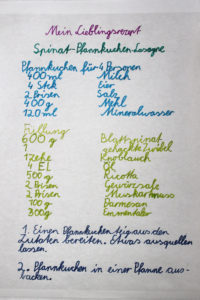 Mein Lieblingsrezept
Spinat-Pfannkuchen-Lasagne
Pfannkuchen für 4 Personen
400ml Milch
4 Stck Eier
2 Prisen Salz
400g Mehl
120ml Mineralwasser
Füllung
600 g Blattspinat
? gehackte Zwiebel
1 Zehe Knoblauch
4 EL Öl
500g Ricotta
2 Prisen Gewürzsalz
2 Prisen Muskatnuss
100g Parmesan
300g Emmentaler
1. Einen Pfannkuchenteig aus den
Zutaten bereiten. Etwas ausquellen
lassen.
2. Pfannkuchen in einer Pfanne aus-
backen.